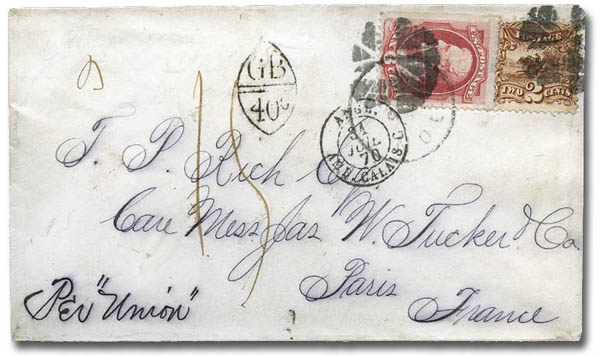 GB
40c
TWO 2 CENTS
ANGL.
AMB. CALAIS C
31
JUIL
70
15
T. P. Rich
Care Mess. Jas W. Tucker & Co.
Paris
France
Per "Union"